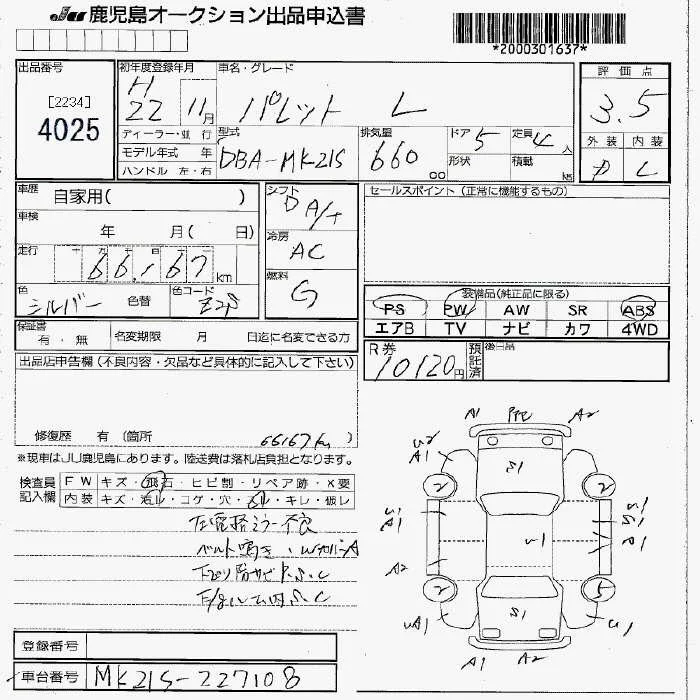 JU 鹿児島オークション出品申込書
*2000301637*
出品番号
[2234]
4025
初年度登録年月
H
22 11月
車名・グレード
パレット L
ディーラー・並 行
モデル年式 年
ハンドル 左・右
型式
DBA-MK21S
排気量
660 cc
ドア 5
形状
定員 4 人
積載 kg
評価点
3.5
外装 内装
D L
車歴 自家用( )
車検
年 月( 日)
走行
66,167 km
色
シルバー 色替
色コード
Z2S
シフト
DA/t
冷房
AC
燃料
G
セールスポイント (正常に機能するもの)
装備品(純正品に限る)
PS PW AW SR ABS
エアB TV ナビ カワ 4WD
保証書
有・無 名変期限 月 日迄に名変できる方
R券
10120円
預託済
後日品
出品店申告欄 (不良内容・欠品など具体的に記入して下さい)
修復歴 有 (箇所 66167km )
※現車はJU鹿児島にあります。陸送費は落札店負担となります。
検査員記入欄
FW キズ・飛石・ヒビ割・リペア跡・X要
内装 キズ・汚ル・コゲ・穴・スレ・キレ・破レ
ベルト鳴き・WカバーA
A1 A2
U2
A1
S1
2 2
A1
U1
S1
A1
U1
A2
2 5
UA1
S1
U1
A1 A2
登録番号
車台番号 MK21S-227108